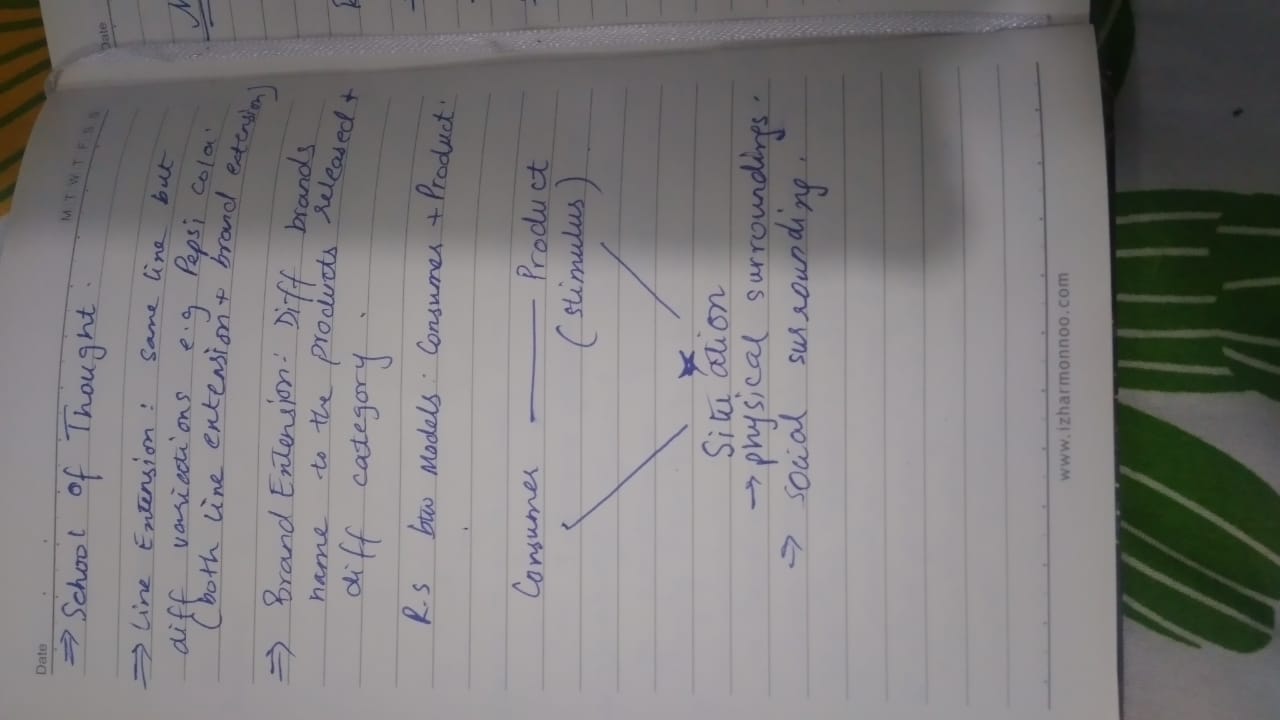 Date
M T W T F S S
⇒ School of Thought.
⇒ Line Extension: same line but
diff variections e.g Pepsi cola.
(both line extension + brand extension)
⇒ Brand Extension: Diff brands
name to the products released +
diff category.
R.S btw Models: Consumer + Product.
Consumer — Product
(stimulus)
Situation
→ physical surroundings.
⇒ social surrounding.
www.izharmonnoo.com
Date